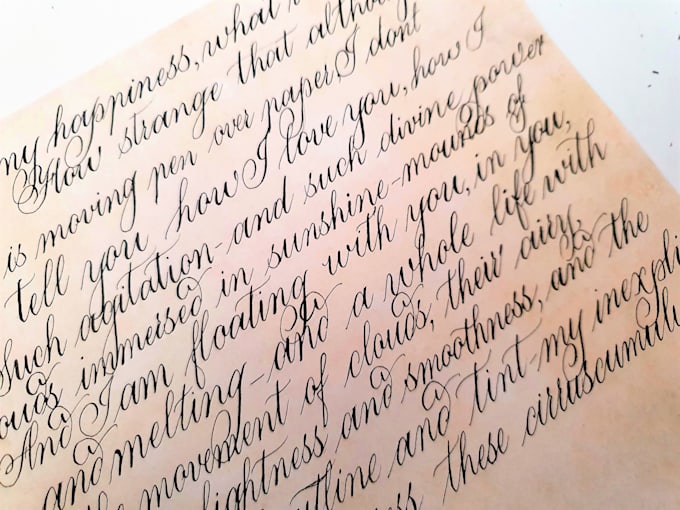 my happiness, what
How strange that althou
is moving pen over paper I dont
tell you how I love you, how I
Such agitation-and such divine power
ouds immersed in sunshine-mounds of
And I am floating with you, in you,
and melting-and a whole life with
the movement of clouds, their airy,
ightness and smoothness, and the
utline and tint-my inexpli
ess these cirruscumulu